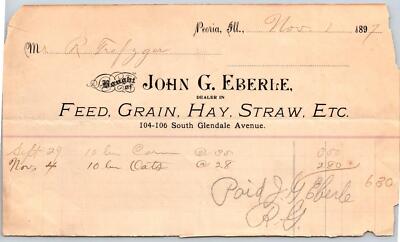 Peoria, Ill., Nov. 1 1897
Mr R Trefzger
Bought of JOHN G. EBERLE,
DEALER IN
FEED, GRAIN, HAY, STRAW, ETC.
104-106 South Glendale Avenue.
Sept 29 10 bu Corn @ 35 3.50
Nov. 4 10 bu Oats @ 28 2.80
6 30
Paid J. G Eberle